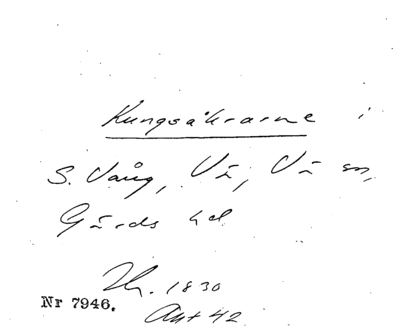 Kungsåkrarne i
S. Vång, Vä, Vä sn,
Gärds hd
1830
Nr 7946.
Akt 42